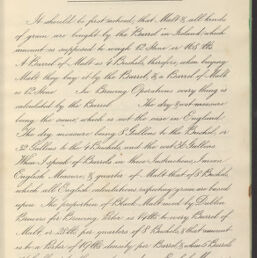 It should be first noticed, that Malt & all kinds
of grain are bought by the Barrel in Ireland which
amount is supposed to weigh 12 Stone or 168 lbs.
A Barrel of Malt is 4 Bushels, therefore, when buying
Malt they buy it by the Barrel, & a Barrel of Malt
is 12 Stone In Brewing Operations every thing is
calculated by the Barrel The dry & wet measure
being the same, which is not the case in England.
The dry measure being 8 Gallons to the Bushel, or
32 Gallons to the 4 Bushels, and the wet 36 Gallons
When I speak of Barrels in these Instructions, I mean
English Measure, & quarter of Malt that of 8 Bushels,
which all English calculations respecting grain are based
upon The proportion of Black Malt used by Dublin
Brewers for Brewing Porter is to every Barrel of
Malt, or 28 lbs. per quarter of 8 Bushels, & that amount
is to a Porter of density per Barrel, & when